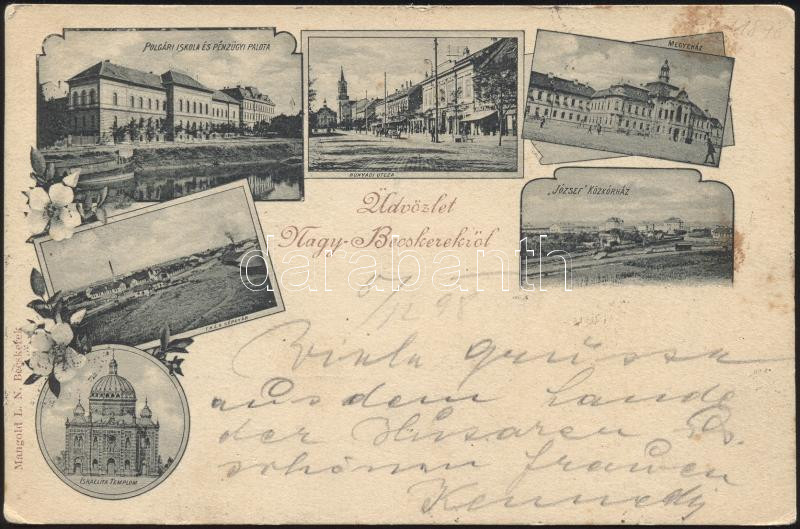 POLGÁRI ISKOLA ÉS PÉNZÜGYI PALOTA
HUNYADI UTCZA
MEGYEHÁZ
„JÓZSEF" KÖZKÓRHÁZ
Üdvözlet
Nagy-Becskerekről
darabanth
12 98
Viele grüsse
aus dem Lande
der Husaren &
schönen frauen
Kennedy
ISRAELITA TEMPLOM
Mangold L. N. Becskerek